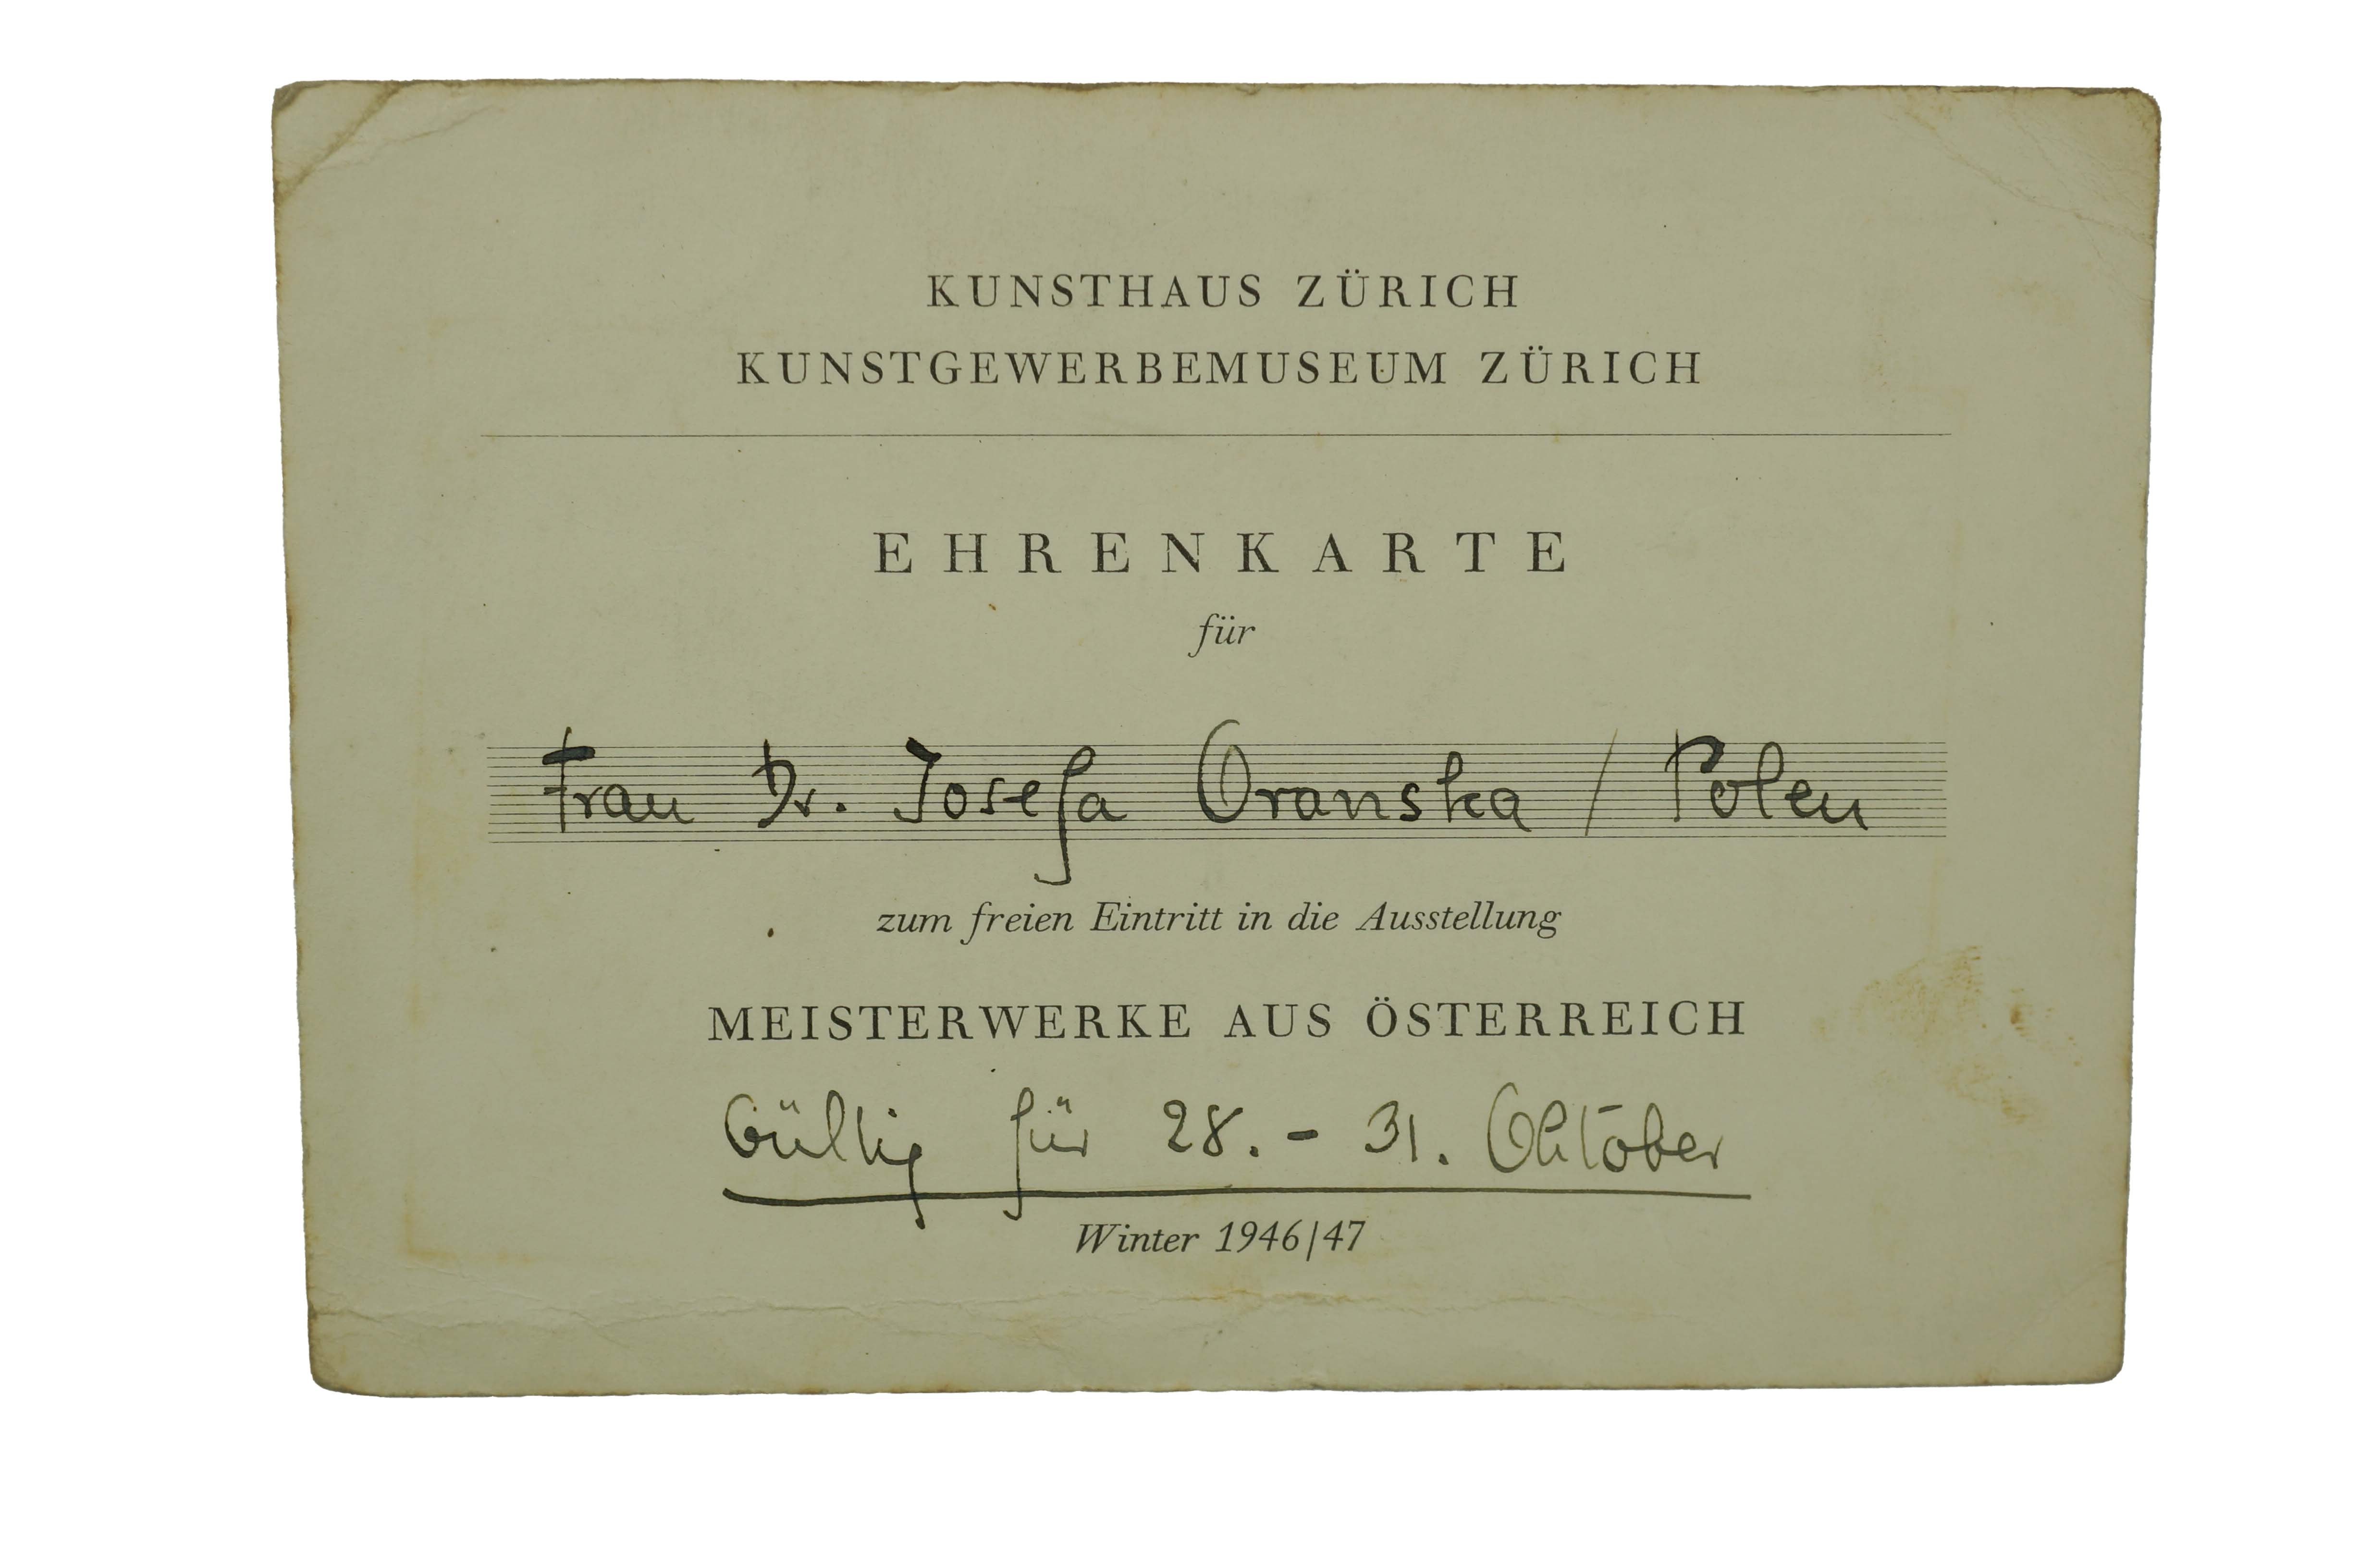 KUNSTHAUS ZÜRICH
KUNSTGEWERBEMUSEUM ZÜRICH
EHRENKARTE
für
Frau Dr. Josefa Oranska / Polen
zum freien Eintritt in die Ausstellung
MEISTERWERKE AUS ÖSTERREICH
Gültig für 28. - 31. Oktober
Winter 1946/47